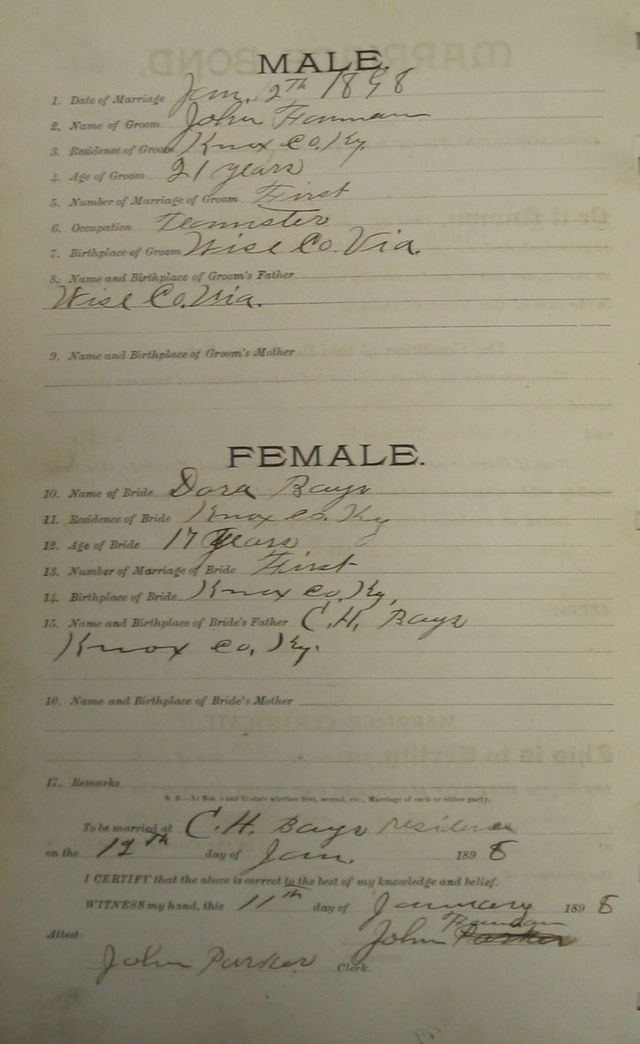 MALE.
1. Date of Marriage Jan. 12th 1898
2. Name of Groom John
3. Residence of Groom Knox Co. Ky.
4. Age of Groom 21 years
5. Number of Marriage of Groom First
6. Occupation Teamister
7. Birthplace of Groom Wise Co. Via.
8. Name and Birthplace of Groom's Father
Wise Co. Via.
9. Name and Birthplace of Groom's Mother
FEMALE.
10. Name of Bride Dora Bays
11. Residence of Bride Knox Co. Ky
12. Age of Bride 17 Years
13. Number of Marriage of Bride First
14. Birthplace of Bride Knox Co, Ky.
15. Name and Birthplace of Bride's Father C.H. Bays
Knox Co, Ky.
16. Name and Birthplace of Bride's Mother
17. Remarks
N. B.—At Nos. 5 and 13 state whether first, second, etc., Marriage of each or either party.
To be married at C.H. Bays residence
on the 12th day of Jan. 1898
I CERTIFY that the above is correct to the best of my knowledge and belief.
WITNESS my hand, this 11th day of January 1898
John Parker
Attest:
John Parker Clerk.